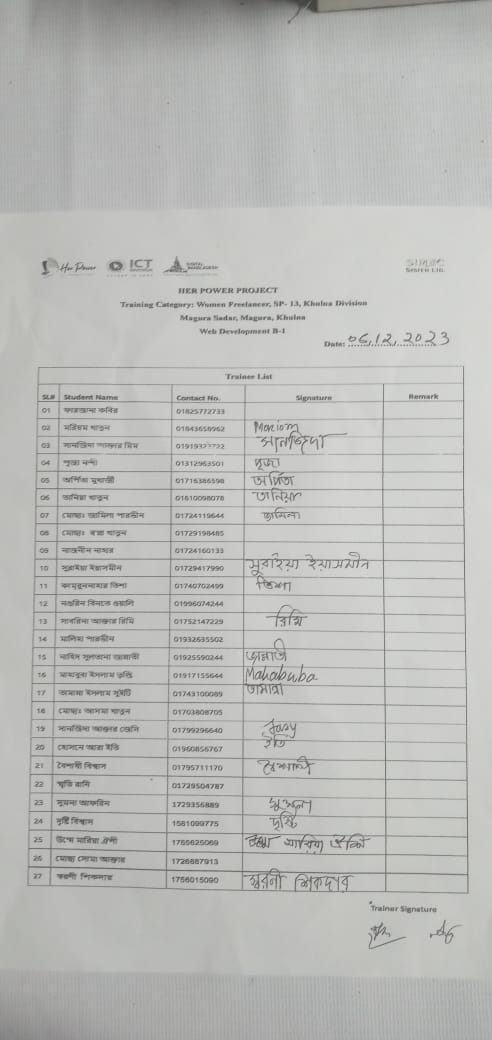 Her Power
ICT
DIVISION
DIGITAL
BANGLADESH
SIMEC
SYSTEM LTD.
HER POWER PROJECT
Training Category: Women Freelancer, SP- 13, Khulna Division
Magura Sadar, Magura, Khulna
Web Development B-1
Date: 06/12, 2023
Trainer List
SL# Student Name Contact No. Signature Remark
01 ফারজানা কবির 01825772733
02 মরিয়ম খাতুন 01843658962 Moriom
03 সানজিদা আক্তার মিম সানজিদা
04 পূজা নন্দী 01312963501 পূজা
05 অর্পিতা মুখার্জী 01716386598 অর্পিতা
06 তানিয়া খাতুন 01610098078 তানিয়া
07 মোছাঃ জামিলা পারভীন 01724119644 জামিলা
08 মোছাঃ খাতুন 01729198485
09 নাজনীন নাহার 01724160133
10 সুরাইয়া ইয়াসমীন 01729417990 সুরাইয়া ইয়াসমীন
11 কামরুননাহার তিশা 01740702499 তিশা
12 নওরিন বিনতে ওয়ালি 01996074244
13 সাবরিনা আক্তার রিমি 01752147229 রিমি
14 মালিহা পারভীন 01932635502
15 নাবিদ সুলতানা জান্নাতী 01925590244 জান্নাতী
16 মাহবুবা ইসলাম তৃপ্তি 01917155644 Mahabuba
17 তামান্না ইসলাম সুইটি 01743100089 তামান্না
18 মোছাঃ আসমা খাতুন 01703808705
19 সানজিদা আক্তার জেসি 01799296640
20 হোসনে আরা ইতি 01960856767 ইতি
21 বৈশাখী বিশ্বাস 01795711170 বৈশাখী
22 স্মৃতি রানি 01729504787
23 সুমনা আফরিন 1729356889 সুমনা
24 দৃষ্টি বিশ্বাস 1581099775 দৃষ্টি
25 উম্মে মারিয়া ঐশী 1765625069 উম্মে মারিয়া ঐশী
26 মোছা সোমা আক্তার 1726887913
27 স্বরণী শিকদার 1756015090 স্বরনী শিকদার
Trainer Signature